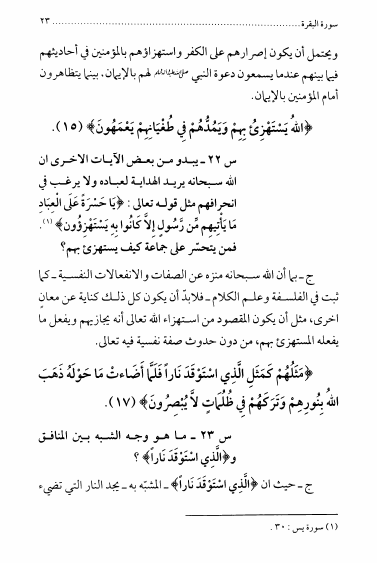 سورة البقرة ........................................................ ٢٣
ويحتمل أن يكون إصرارهم على الكفر واستهزاؤهم بالمؤمنين في أحاديثهم
فيما بينهم عندما يسمعون دعوة النبي لهم بالإيمان، بينما يتظاهرون
أمام المؤمنين بالإيمان.
﴿اللهُ يَسْتَهْزِئُ بِهِمْ وَيَمُدُّهُمْ فِي طُغْيَانِهِمْ يَعْمَهُونَ﴾ (١٥).
س ٢٢ ـ يبدو من بعض الآيات الاخرى ان
الله سبحانه يريد الهداية لعباده ولا يرغب في
انحرافهم مثل قوله تعالى : ﴿يَا حَسْرَةً عَلَى الْعِبَادِ
مَا يَأْتِيهِم مِّن رَّسُولٍ إِلاَّ كَانُوا بِهِ يَسْتَهْزِؤُون﴾(١).
فمن يتحسّر على جماعة كيف يستهزئ بهم؟
ج ـ بما أن الله سبحانه منزه عن الصفات والانفعالات النفسية ـ كما
ثبت في الفلسفة وعلم الكلام ـ فلابدّ أن يكون كل ذلك كناية عن معانٍ
اخرى، مثل أن يكون المقصود من استهزاء الله تعالى أنه يجازيهم ويفعل ما
يفعله المستهزئ بهم، من دون حدوث صفة نفسية فيه تعالى.
﴿مَثَلُهُمْ كَمَثَلِ الَّذِي اسْتَوْقَدَ نَاراً فَلَمَّا أَضَاءتْ مَا حَوْلَهُ ذَهَبَ
اللهُ بِنُورِهِمْ وَتَرَكَهُمْ فِي ظُلُمَاتٍ لاَّ يُبْصِرُونَ﴾ (١٧).
س ٢٣ ـ ما هو وجه الشبه بين المنافق
و﴿الَّذِي اسْتَوْقَدَ نَاراً﴾ ؟
ج ـ حيث ان ﴿الَّذِي اسْتَوْقَدَ نَاراً﴾ ـ المشبّه به ـ يجد النار التي تضيء
(١) سورة يس : ٣٠ .